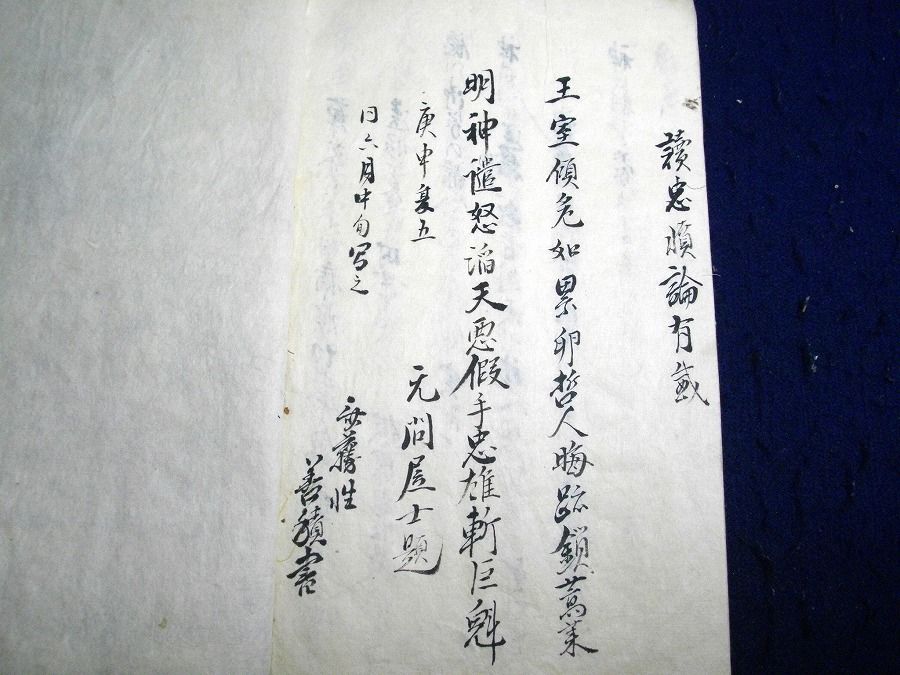 讀忠順論有感
王室傾危如累卵哲人晦跡鎖蒿萊
明神譴怒滔天惡假手忠雄斬巨魁
庚申夏五
无問居士題
日六月中旬写之
藤性
善積書